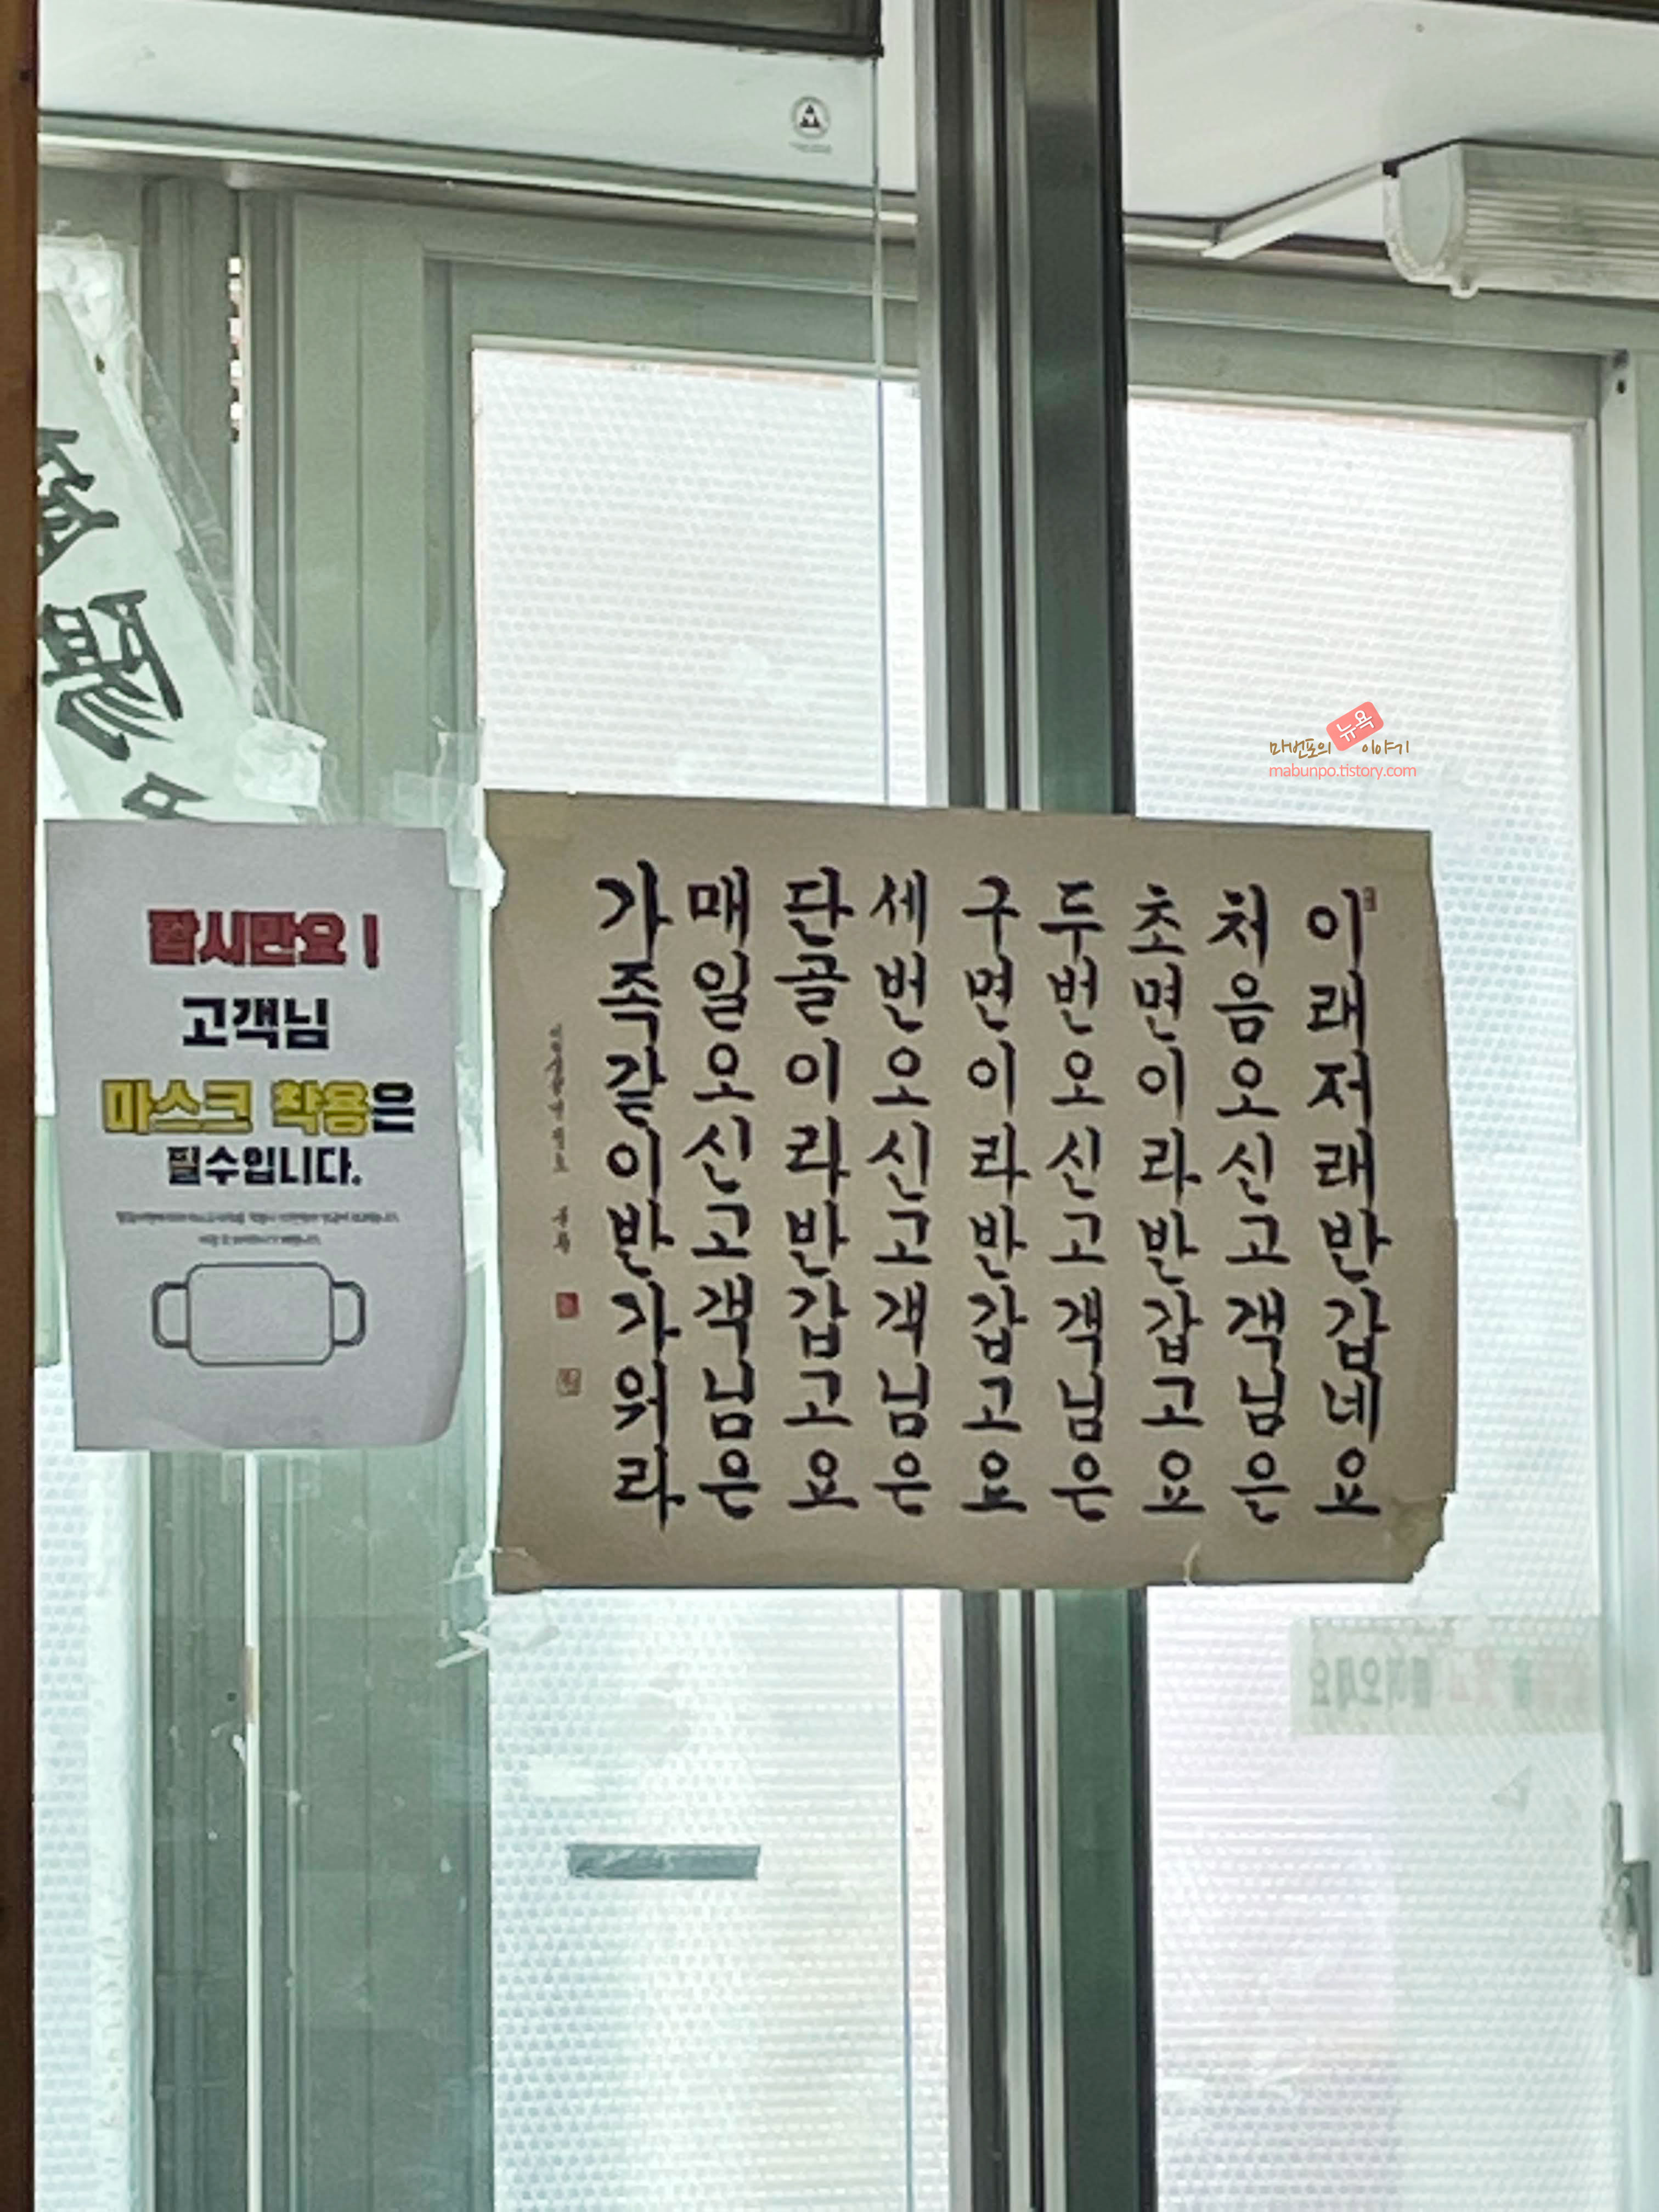 잠시만요!
고객님
마스크 착용은
필수입니다.
이래저래반갑네요
처음오신고객님은
초면이라반갑고요
두번오신고객님은
구면이라반갑고요
세번오신고객님은
단골이라반갑고요
매일오신고객님은
가족같이반가워라
마번포의 뉴욕 이야기
mabunpo.tistory.com